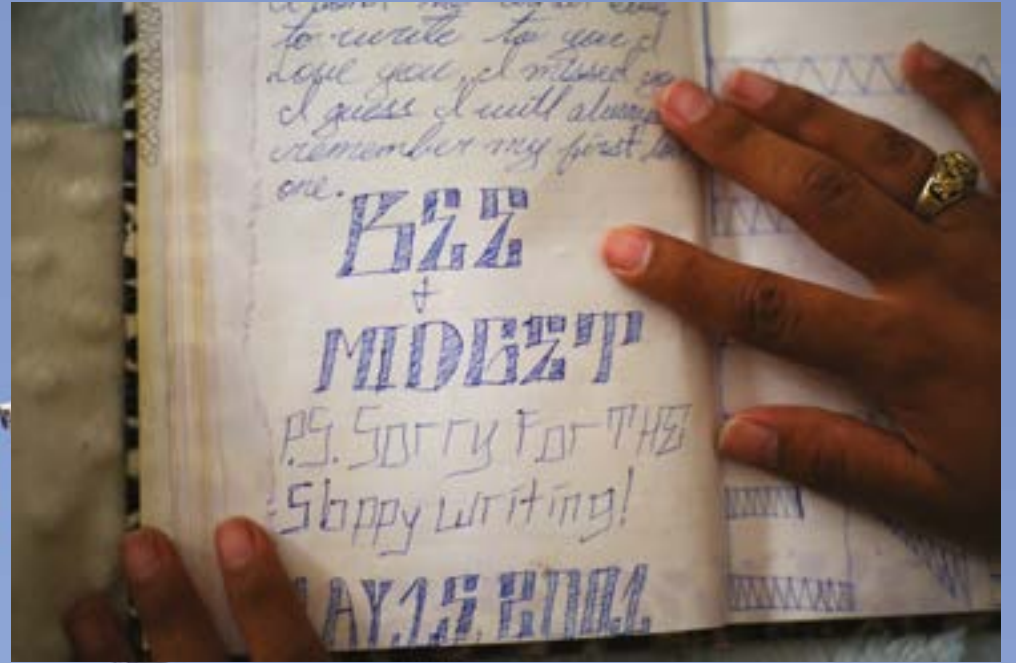 to write to you I
Love you, I missed
I guess I will always
remember my first
one.
BEE
+
MIDGET
P.S. Sorry For THE
Sloppy writing!
MAY 15 2001